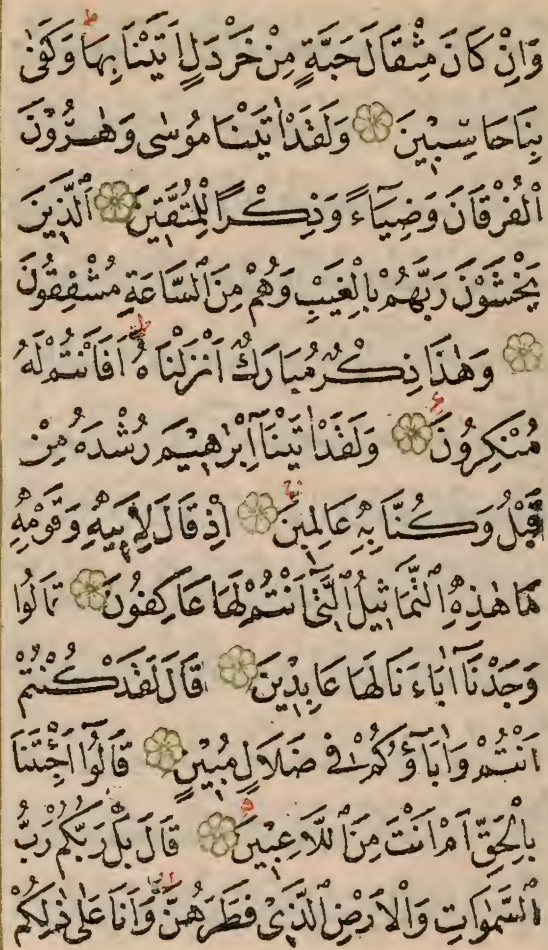 وَاِنْ كَانَ مِثْقَالَ حَبَّةٍ مِنْ خَرْدَلٍ اَتَيْنَا بِهَا وَكَفٰى
بِنَا حَاسِبِينَ وَلَقَدْ اٰتَيْنَا مُوسٰى وَهٰرُونَ
الْفُرْقَانَ وَضِيَاءً وَذِكْرًا لِلْمُتَّقِينَ اَلَّذِينَ
يَخْشَوْنَ رَبَّهُمْ بِالْغَيْبِ وَهُمْ مِنَ السَّاعَةِ مُشْفِقُونَ
وَهٰذَا ذِكْرٌ مُبَارَكٌ اَنْزَلْنَاهُ اَفَاَنْتُمْ لَهُ
مُنْكِرُونَ وَلَقَدْ اٰتَيْنَا اِبْرٰهِيمَ رُشْدَهُ مِنْ
قَبْلُ وَكُنَّا بِهِ عَالِمِينَ اِذْ قَالَ لِاَبِيهِ وَقَوْمِهِ
مَا هٰذِهِ التَّمَاثِيلُ الَّتِي اَنْتُمْ لَهَا عَاكِفُونَ قَالُوا
وَجَدْنَا اٰبَاءَنَا لَهَا عَابِدِينَ قَالَ لَقَدْ كُنْتُمْ
اَنْتُمْ وَاٰبَاؤُكُمْ فِي ضَلَالٍ مُبِينٍ قَالُوا اَجِئْتَنَا
بِالْحَقِّ اَمْ اَنْتَ مِنَ اللَّاعِبِينَ قَالَ بَلْ رَبُّكُمْ رَبُّ
السَّمٰوَاتِ وَالْاَرْضِ الَّذِي فَطَرَهُنَّ وَاَنَا عَلٰى ذٰلِكُمْ